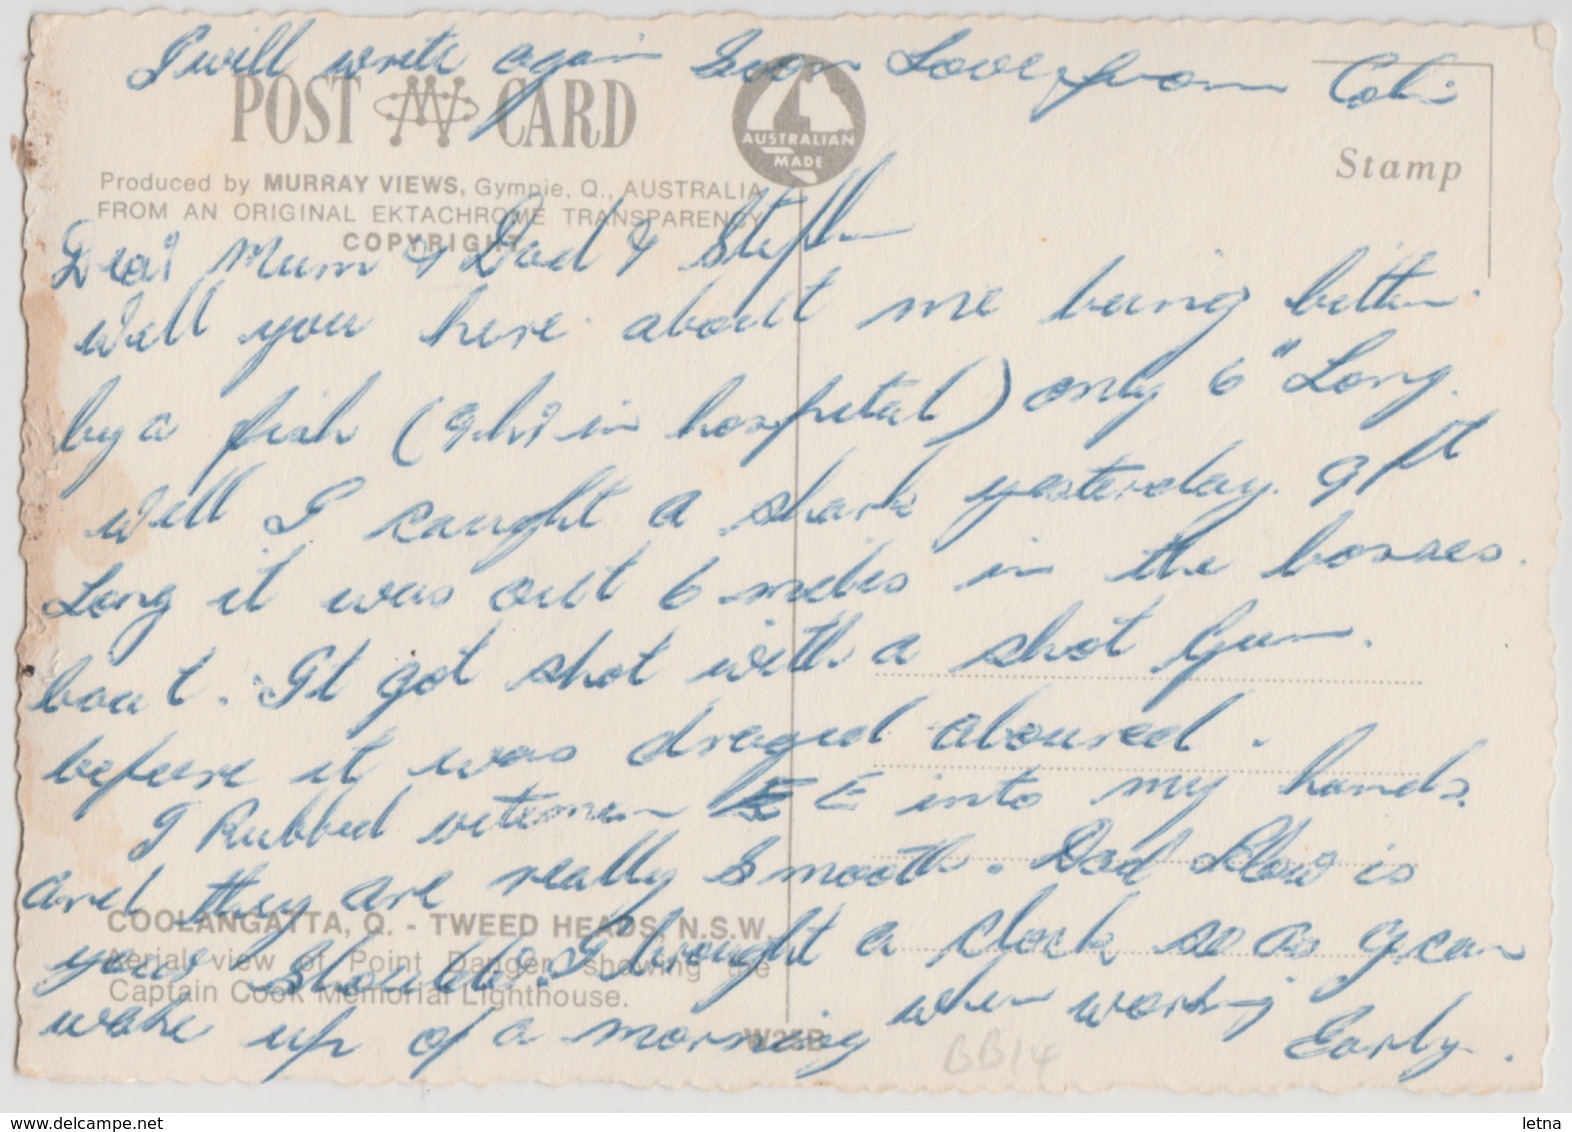 I will write again Soon Love from Colin
POST CARD
AUSTRALIAN
MADE
Stamp
Produced by MURRAY VIEWS, Gympie, Q., AUSTRALIA
FROM AN ORIGINAL EKTACHROME TRANSPARENCY
COPYRIGHT
Dear Mum & Dad & Stephen
Well you here about me being bitten
by a fish ( in hospital) only 6" Long.
Well I caught a shark yesterday. 9 ft
Long it was out 6 miles in the bosses
boat. It got shot with a shot Gun.
before it was draged aboured.
I Rubbed vitemen E into my hands.
and they are really Smooth. Dad How is
your Shoulder. I brought a clock so as I can
wake up of a morning when working
Early.
COOLANGATTA, Q. - TWEED HEADS, N.S.W.
Aerial view of Point Danger, showing the
Captain Cook Memorial Lighthouse.
W25B
BB14
letna